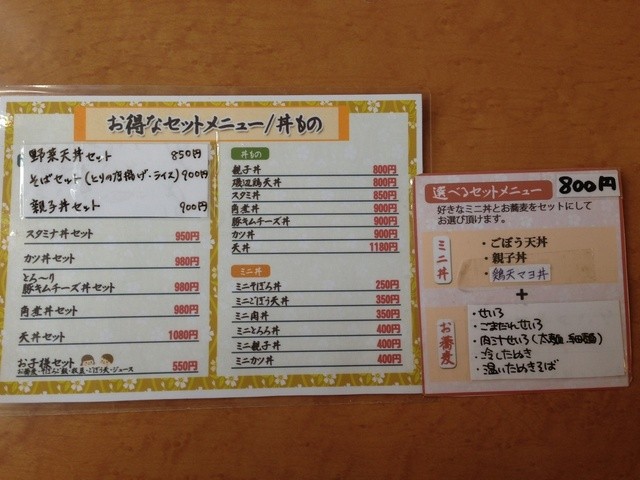 お得なセットメニュー/丼もの
野菜天丼セット 850円
そばセット(とりの唐揚げ・ライス) 900円
親子丼セット 900円
スタミナ丼セット 950円
カツ丼セット 980円
とろ〜り
豚キムチーズ丼セット 980円
角煮丼セット 980円
天丼セット 1080円
お子様セット 550円
丼もの
親子丼 800円
磯辺鶏天丼 800円
スタミ丼 850円
角煮丼 900円
豚キムチーズ丼 900円
カツ丼 900円
天丼 1180円
ミニ丼
ミニそぼろ丼 250円
ミニごぼう天丼 350円
ミニ肉丼 350円
ミニとろろ丼 400円
ミニ親子丼 400円
ミニカツ丼 400円
選べるセットメニュー 800円
好きなミニ丼とお蕎麦をセットにして
お選び頂けます。
ミニ丼
・ごぼう天丼
・親子丼
・鶏天マヨ丼
+
お蕎麦
・せいろ
・ごまだれせいろ
・肉汁せいろ(太麺、細麺)
・冷したぬき
・温いたぬきそば